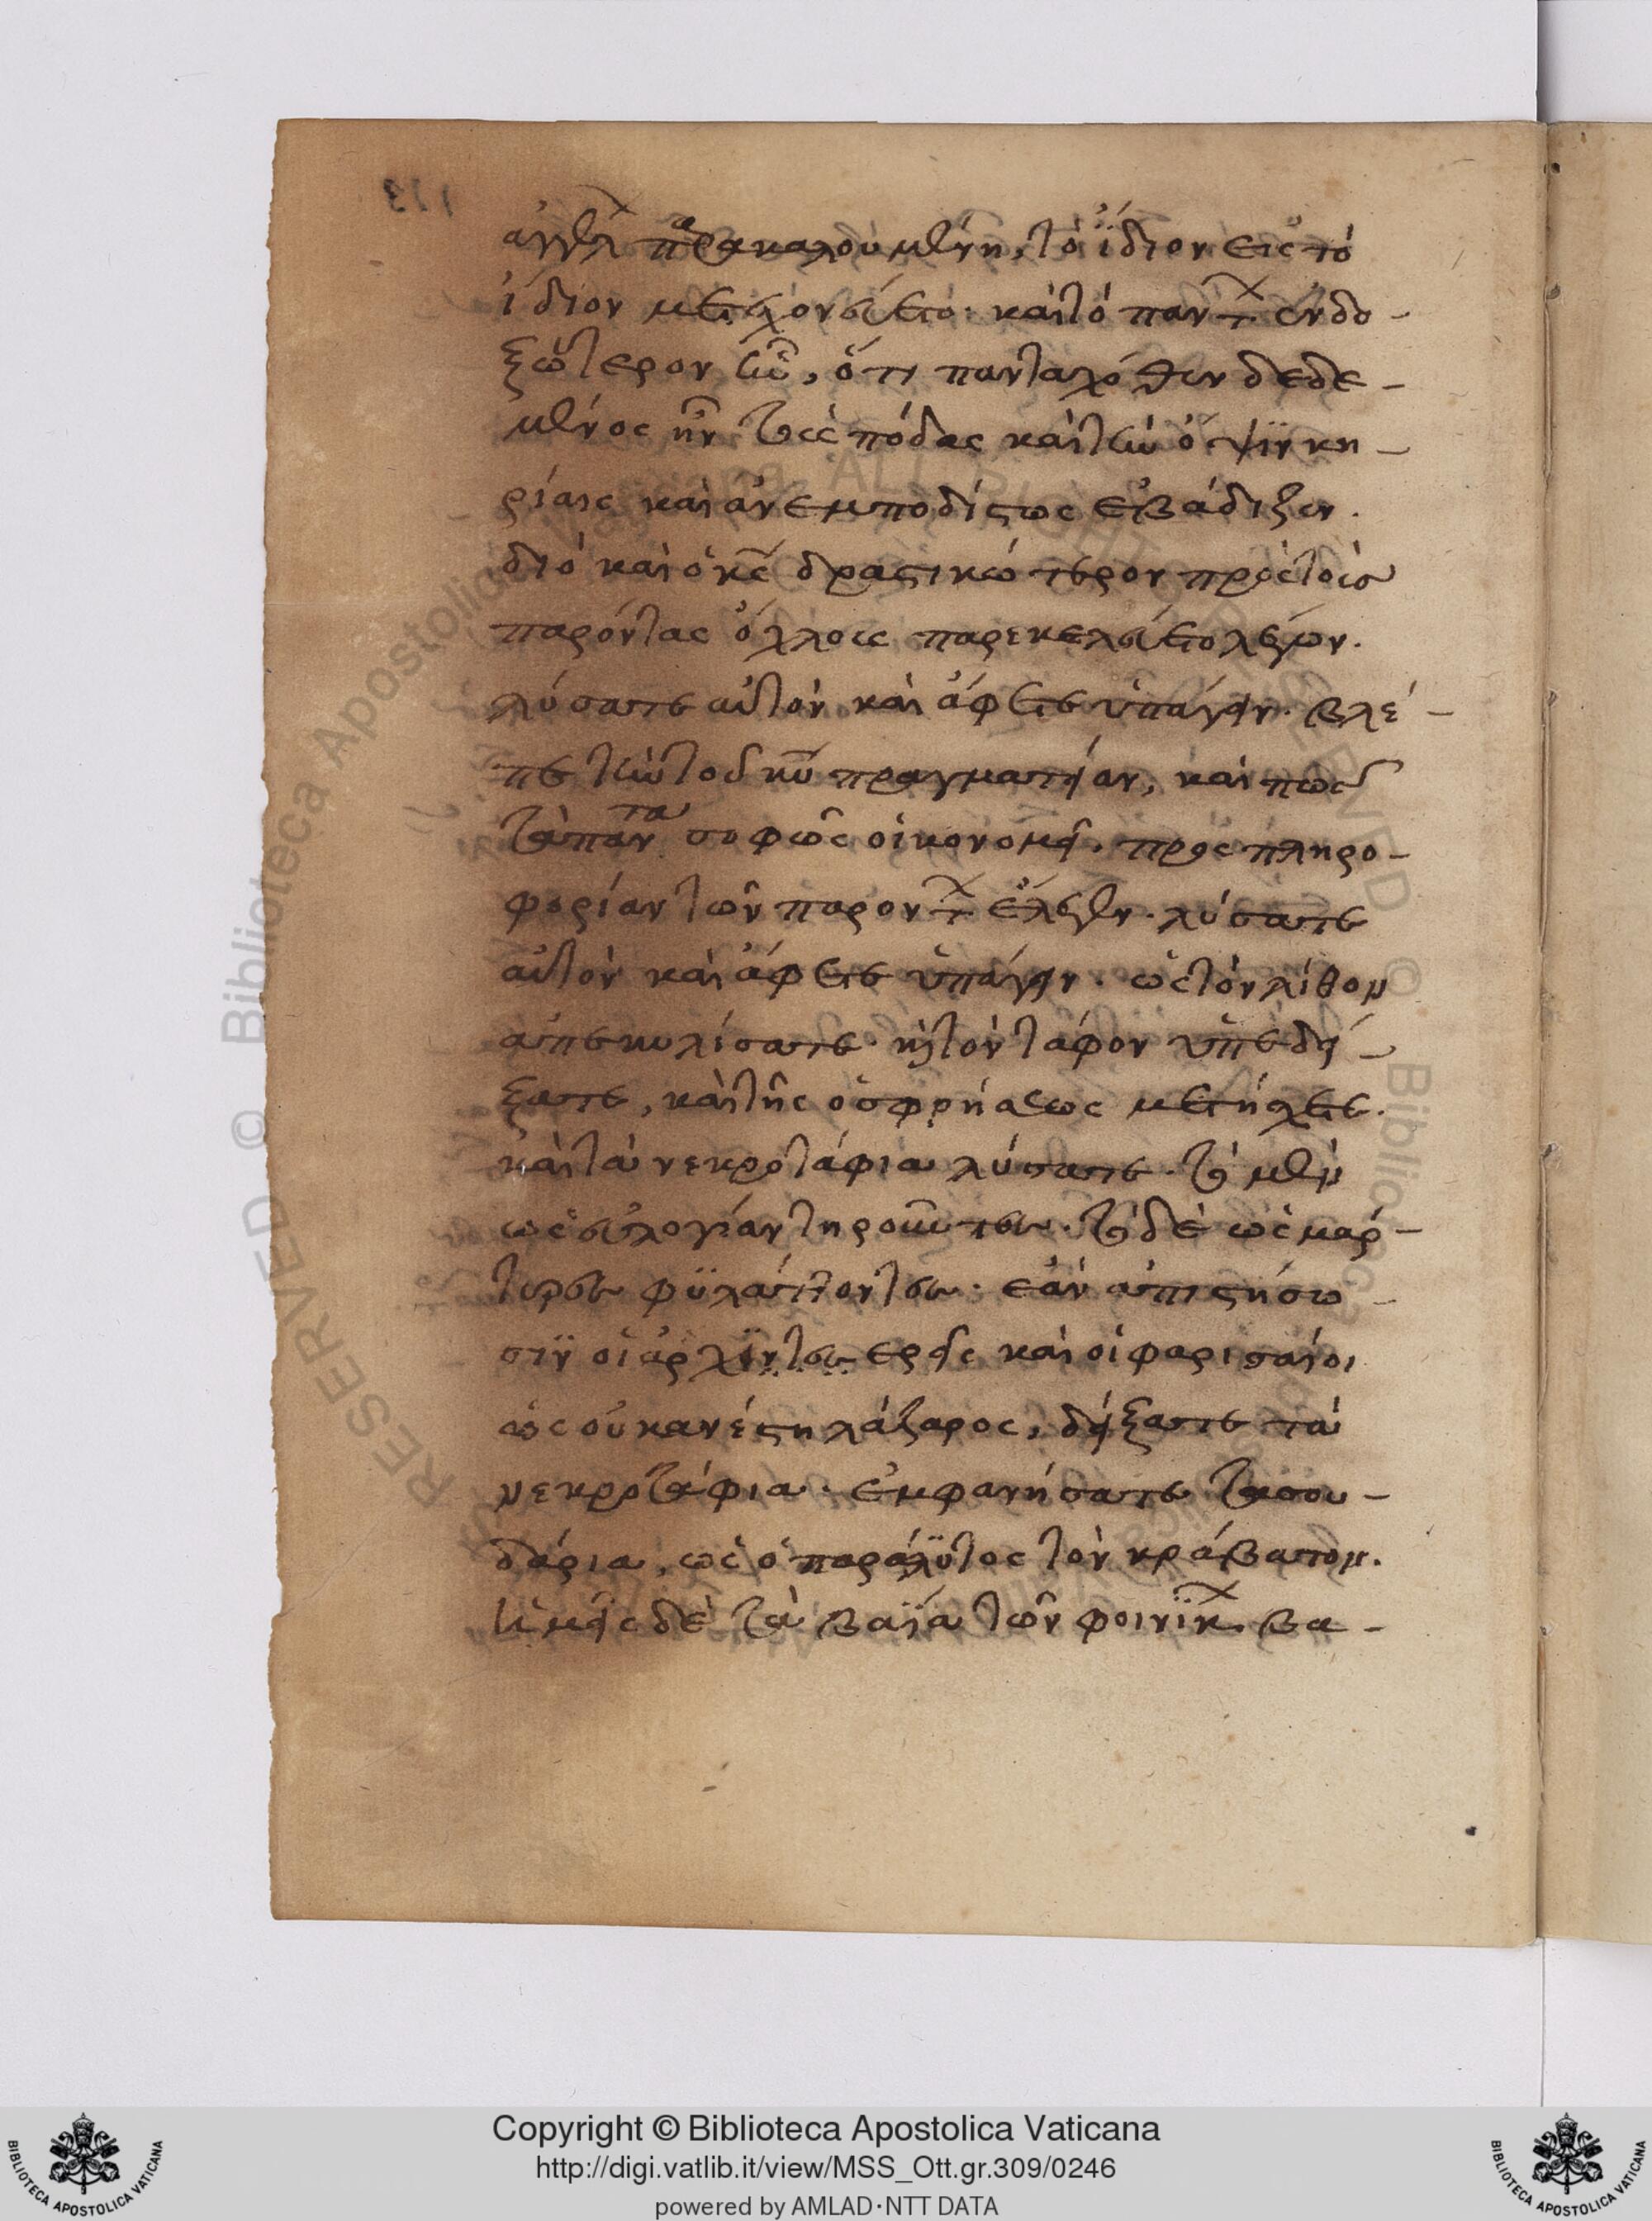 ἀγγέλων παρακαλουμένη, τὸ ἴδιον εἰς τὸ
ἴδιον μετωχονεύετο· καὶ τὸ πάντων ἐνδο-
ξώτερον ἦν, ὅτι πανταχόθεν δεδε-
μένος ἦν τοὺς πόδας καὶ τὴν ὄψιν κη-
ρίαις καὶ ἀνεμποδίστως ἐβάδιζεν.
διὸ καὶ ὁ κς δραστικώτερον πρὸς τοὺς
παρόντας ὄχλους παρεκελεύετο λέγων.
λύσατε αὐτὸν καὶ ἄφετε ὑπάγειν. βλέ-
πε τὴν τοῦ κυ πραγματείαν, καὶ πῶς
τὰ πάντα σοφῶς οἰκονομεῖ. πρὸς πληρο-
φορίαν τῶν παρόντων ἔλεγεν. λύσατε
αὐτὸν καὶ ἄφετε ὑπάγειν. ὡς τὸν λίθον
ἀπεκυλίσατε. καὶ τὸν τάφον ὑπεδεί-
ξατε, καὶ τῆς ὀσφρήσεως μετήχετε.
καὶ τὰ νεκροτάφια λύσατε. τὰ μὲν
ὡς εὐλογίαν τηροῦντες. τὰ δὲ ὡς μάρ-
τυρες φυλάττοντες. ἐὰν ἀπιστήσω-
σιν οἱ ἀρχιντες ερεῖς καὶ οἱ φαρισαῖοι
ὡς οὐκ ἀνέστη λάζαρος, δείξατε τὰ
νεκροτάφια. ἐμφανήσατε τὰ σου-
δάρια, ὡς ὁ παράλυτος τὸν κράβατον.
ἡμεῖς δὲ τὰ βαΐα τῶν φοινίκων βα-
113
Copyright © Biblioteca Apostolica Vaticana
http://digi.vatlib.it/view/MSS_Ott.gr.309/0246
powered by AMLAD·NTT DATA